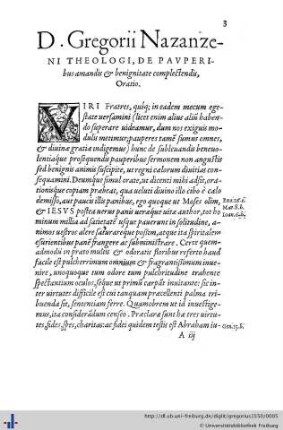 3
D. Gregorii Nazanze-
NI THEOLOGI, DE PAVPERI-
bus amandis & benignitate complectendis,
Oratio.
VIRI Fratres, quiq; in eadem mecum ege-
state uersamini (licet enim alius aliũ haben-
do superare uideamur, dum nos exiguis mo-
dulis metimur, pauperes tamē sumus omnes,
& diuina gratia indigemus) hunc de subleuandis beneuo-
lentiaque prosequendis pauperibus sermonem non angustis
sed benignis animis suscipite, ut regni cælorum diuitias con-
sequamini. Deumque simul orate, ut dicenti mihi adsit, ora-
tionisque copiam præbeat, qua ueluti diuino illo cibo è cælo
demisso, aut paucis illis panibus, ego quoque ut Moses olim,
& IESVS postea uerus panis ueræque uitæ author, tot ho
minum millia ad satietatē usque pauerunt in solitudine, a-
nimos uestros alere saturareque possim, atque ita spiritalem
esurientibus panē frangere ac subministrare. Certe quem-
admodū in prato multis & odoratis floribus referto haud
facile est pulcherrimum omnium & fragrantissimum inue-
nire, unoquoque tum odore tum pulchritudine trahente
spectantium oculos, seque ut primū carpāt inuitante: sic in-
ter uirtutes difficile est cui tanquam præcellenti palma tri-
buenda sit, sententiam ferre. Quamobrem ut id inuestige-
mus, ita considerādum censeo. Præclara sunt hæ tres uirtu-
tes, fides, spes, charitas: ac fidei quidem testis est Abraham iu-
A iij
http://dl.ub.uni-freiburg.de/diglit/gregorius1550/0005
© Universitätsbibliothek Freiburg